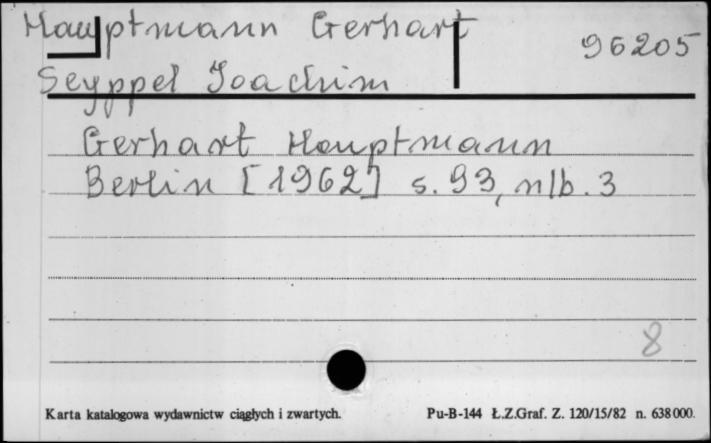 Hauptmann Gerhart
96205
Seyppel Joachim
Gerhart Hauptmann
Berlin [1962] s. 93, nlb. 3
8
Karta katalogowa wydawnictw ciągłych i zwartych. Pu-B-144 Ł.Z.Graf. Z. 120/15/82 n. 638000.